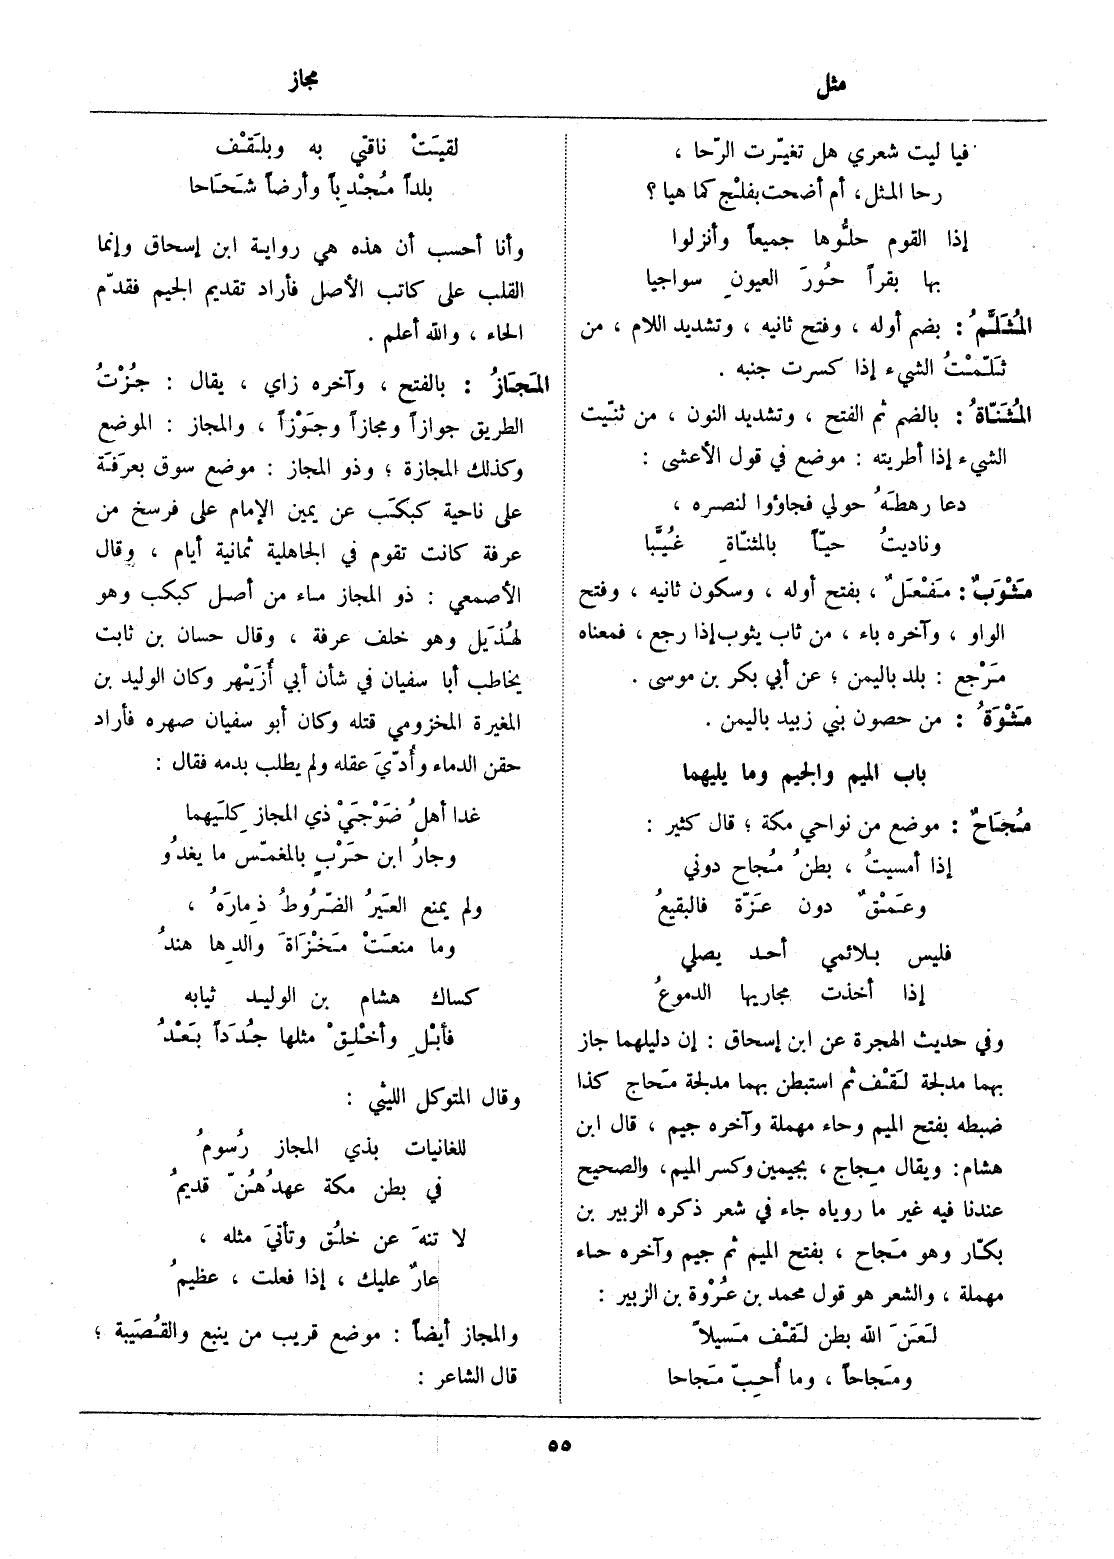 مثل
مجاز
فيا ليت شعري هل تغيّرت الرّحا ،
رحا المثل، أم أضحت بفلْج كما هيا ؟
إذا القوم حلُّوها جميعاً وأنزلوا
بها بقراً حُورَ العيونِ سواجيا
المُثَلَّمُ : بضم أوله ، وفتح ثانيه ، وتشديد اللام ، من
ثَلّمْتُ الشيء إذا كسرت جنبه .
المُثَنّاةُ : بالضم ثم الفتح ، وتشديد النون ، من ثنّيت
الشيء إذا أطريته : موضع في قول الأعشى :
دعا رهطَهُ حولي فجاؤوا لنصره ،
وناديتُ حيّاً بالمثنّاةِ غُيَّبا
مَثْوَبٌ : مَفْعَلٌ ، بفتح أوله ، وسكون ثانيه ، وفتح
الواو ، وآخره باء ، من ثاب يثوب إذا رجع ، فمعناه
مَرْجع : بلد باليمن ؛ عن أبي بكر بن موسى .
مَثْوَةُ : من حصون بني زبيد باليمن .
باب الميم والجيم وما يليهما
مُجَاحٌ : موضع من نواحي مكة ؛ قال كثير :
إذا أمسيتُ ، بطنُ مُجاح دوني
وعَمْقٌ دون عَزّة فالبقيعُ
فليس بلائمي أحد يصلي
إذا أخذت مجاريها الدموعُ
وفي حديث الهجرة عن ابن إسحاق : إن دليلهما جاز
بهما مدلجة لَقْف ثم استبطن بهما مدلجة مَحاج كذا
ضبطه بفتح الميم وحاء مهملة وآخره جيم ، قال ابن
هشام : ويقال مِجاج ، بجيمين وكسر الميم ، والصحيح
عندنا فيه غير ما روياه جاء في شعر ذكره الزبير بن
بكّار وهو مَجاح ، بفتح الميم ثم جيم وآخره حاء
مهملة ، والشعر هو قول محمد بن عُرْوة بن الزبير :
لَعَنَ الله بطن لَقْف مَسيلاً
ومَجاحاً ، وما أُحِبّ مَجاحا
لقيَتْ ناقتي به وبلَقْف
بلداً مُجْدِباً وأرضاً شَحَاحا
وأنا أحسب أن هذه هي رواية ابن إسحاق وإنما
القلب على كاتب الأصل فأراد تقديم الجيم فقدّم
الحاء ، والله أعلم .
المَجَازُ : بالفتح ، وآخره زاي ، يقال : جُزْتُ
الطريق جوازاً ومجازاً وجَوْزاً ، والمجاز : الموضع
وكذلك المجازة ؛ وذو المجاز : موضع سوق بعرَفَة
على ناحية كبكَب عن يمين الإمام على فرسخ من
عرفة كانت تقوم في الجاهلية ثمانية أيام ، وقال
الأصمعي : ذو المجاز ماء من أصل كبكب وهو
لهُذَيل وهو خلف عرفة ، وقال حسان بن ثابت
يخاطب أبا سفيان في شأن أبي أُزَيْهر وكان الوليد بن
المغيرة المخزومي قتله وكان أبو سفيان صهره فأراد
حقن الدماء وأُدّيَ عقله ولم يطلب بدمه فقال :
غدا أهلُ ضَوْجَيْ ذي المجاز كِلَيهما
وجارُ ابن حَرْبٍ بالمغمّس ما يغدُو
ولم يمنع العَيرُ الضّرُوطُ ذِمارَهُ ،
وما منعَتْ مَخْزَاةَ والدِها هندُ
كساك هشام بن الوليد ثيابه
فأبْلِ وأخْلِقْ مثلها جُدَداً بَعْدُ
وقال المتوكل الليثي :
للغانيات بذي المجاز رُسومُ
في بطن مكة عهدُهُنّ قديمُ
لا تنهَ عن خلُق وتأتيَ مثله ،
عارٌ عليك ، إذا فعلت ، عظيمُ
والمجاز أيضاً : موضع قريب من ينبع والقُصَيبة ؛
قال الشاعر :
٥٥